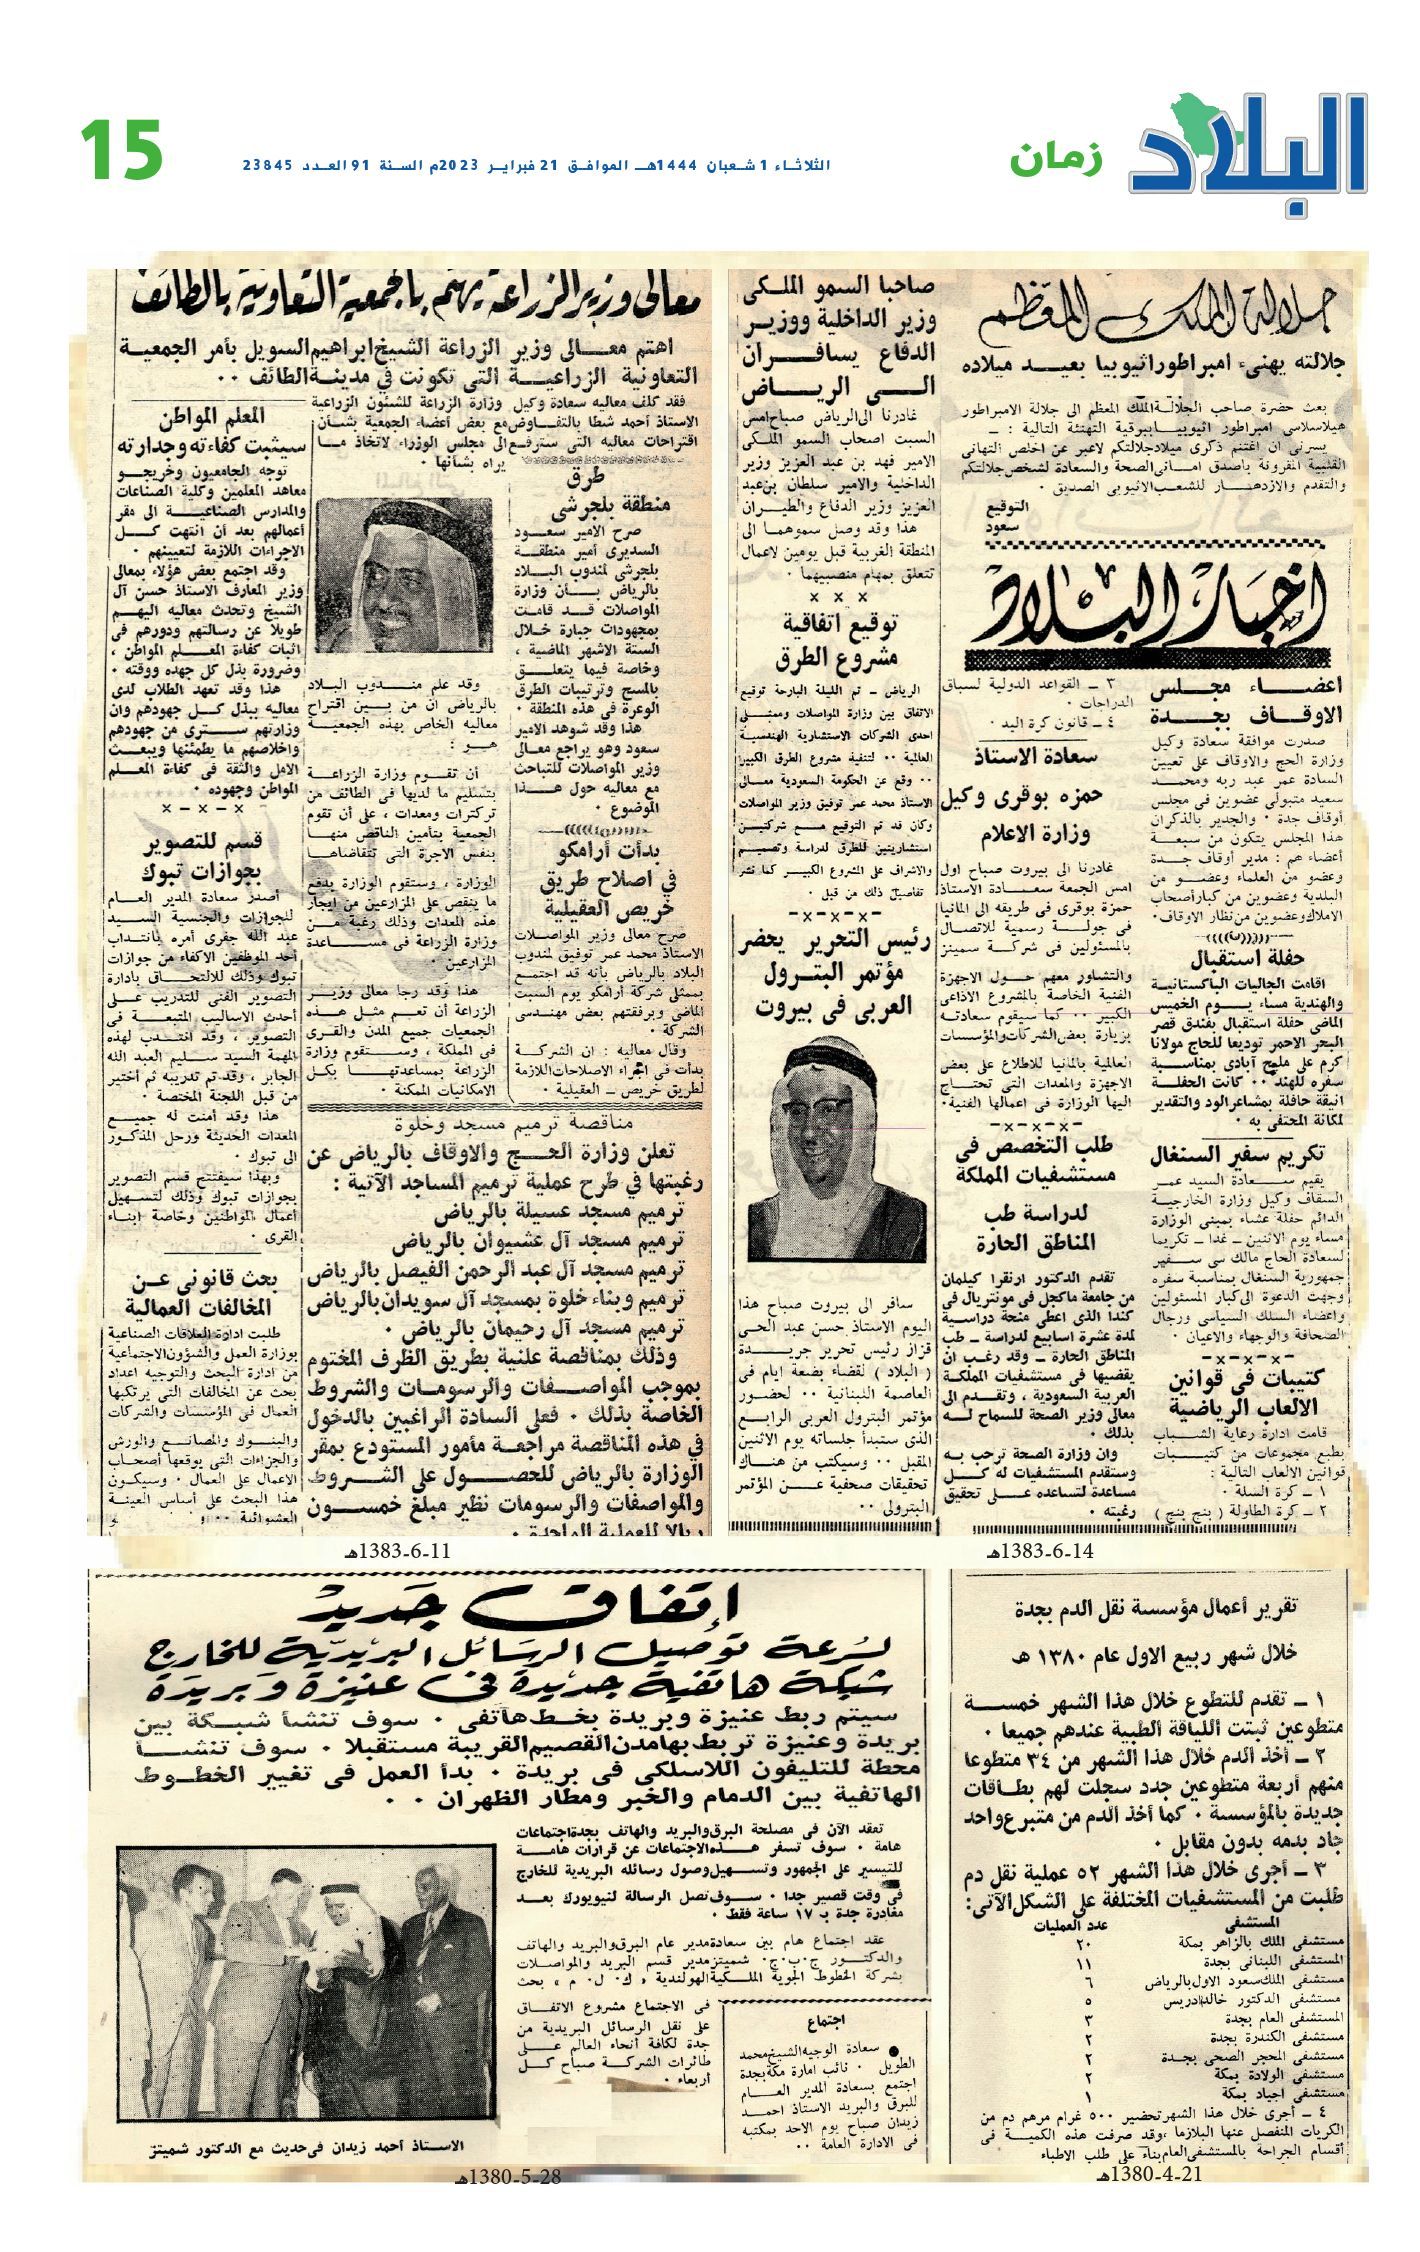 البلاد
زمان
الثلاثاء 1 شعبان 1444هـ الموافق 21 فبراير 2023م السنة 91 العدد 23845
15
جلالة الملك المعظم
جلالته يهنىء امبراطور اثيوبيا بعيد ميلاده
بعث حضرة صاحب الجلالة الملك المعظم الى جلالة الامبراطور
هيلاسلاسى امبراطور اثيوبيا ببرقية التهنئة التالية : ــ
يسرنى ان اغتنم ذكرى ميلاد جلالتكم لاعبر عن اخلص التهانى
القلبية المقرونة باصدق امانى الصحة والسعادة لشخص جلالتكم
والتقدم والازدهار للشعب الاثيوبى الصديق ٠
التوقيع
سعود
اخبار البلاد
اعضاء مجلس
الاوقاف بجدة
صدرت موافقة سعادة وكيل
وزارة الحج والاوقاف على تعيين
السادة عمر عبد ربه ومحمد
سعيد متبولى عضوين فى مجلس
أوقاف جدة ٠ والجدير بالذكران
هذا المجلس يتكون من سبعة
أعضاء هم : مدير أوقاف جدة
وعضو من العلماء وعضو من
البلدية وعضوين من كبار أصحاب
الاملاك وعضوين من نظار الاوقاف٠
حفلة استقبال
اقامت الجاليات الباكستانية
والهندية مساء يوم الخميس
الماضى حفلة استقبال بفندق قصر
البحر الاحمر توديعا للحاج مولانا
كرم على مليح آبادى بمناسبة
سفره للهند ٠٠ كانت الحفلة
انيقة حافلة بمشاعر الود والتقدير
لمكانة المحتفى به ٠
تكريم سفير السنغال
يقيم سعادة السيد عمر
السقاف وكيل وزارة الخارجية
الدائم حفلة عشاء بمبنى الوزارة
مساء يوم الاثنين ــ غدا ــ تكريما
لسعادة الحاج مالك سى سفير
جمهورية السنغال بمناسبة سفره
وجهت الدعوة الى كبار المسئولين
واعضاء السلك السياسى ورجال
الصحافة والوجهاء والاعيان ٠
ــ×ــ×ــ×ــ
كتيبات فى قوانين
الالعاب الرياضية
قامت ادارة رعاية الشباب
بطبع مجموعات من كتيبات
قوانين الالعاب التالية :
١ ــ كرة السلة ٠
٢ ــ كرة الطاولة ( بنج بنج )
٣ ــ القواعد الدولية لسباق
الدراجات ٠
٤ ــ قانون كرة اليد ٠
سعادة الاستاذ
حمزه بوقرى وكيل
وزارة الاعلام
غادرنا الى بيروت صباح اول
امس الجمعة سعادة الاستاذ
حمزة بوقرى فى طريقه الى المانيا
فى جولة رسمية للاتصال
بالمسؤولين فى شركة سمينز
والتشاور معهم حول الاجهزة
الفنية الخاصة بالمشروع الاذاعى
الكبير ٠٠ كما سيقوم سعادته
بزيارة بعض الشركات والمؤسسات
العالمية بالمانيا للاطلاع على بعض
الاجهزة والمعدات التى تحتاج
اليها الوزارة فى اعمالها الفنية٠
ــ×ــ×ــ×ــ
طلب التخصص فى
مستشفيات المملكة
لدراسة طب
المناطق الحارة
تقدم الدكتور ارنقرا كيلمان
من جامعة ماكجل فى مونتريال فى
كندا الذى اعطى منحة دراسية
لمدة عشرة اسابيع لدراسة ــ طب
المناطق الحارة ــ وقد رغب ان
يقضيها فى مستشفيات المملكة
العربية السعودية ، وتقدم الى
معالى وزير الصحة للسماح له
بذلك ٠
وان وزارة الصحة ترحب به
وستقدم المستشفيات له كل
مساعدة لتساعده على تحقيق
رغبته ٠
صاحبا السمو الملكى
وزير الداخلية ووزير
الدفاع يسافران
الى الرياض
غادرنا الى الرياض صباح امس
السبت اصحاب السمو الملكى
الامير فهد بن عبد العزيز وزير
الداخلية والامير سلطان بن عبد
العزيز وزير الدفاع والطيران
هذا وقد وصل سموهما الى
المنطقة الغربية قبل يومين لاعمال
تتعلق بمهام منصبيهما ٠
× × ×
توقيع اتفاقية
مشروع الطرق
الرياض ــ تم الليلة البارحة توقيع
الاتفاق بين وزارة المواصلات وممثلى
احدى الشركات الاستشارية الهندسية
العالمية ٠٠ لتنفيذ مشروع الطرق الكبير
٠٠ وقع عن الحكومة السعودية معالى
الاستاذ محمد عمر توفيق وزير المواصلات
وكان قد تم التوقيع مع شركتين
استشاريتين للطرق لدراسة وتصميم
والاشراف على المشروع الكبير كما نشر
تفاصيل ذلك من قبل ٠
ــ×ــ×ــ×ــ
رئيس التحرير يحضر
مؤتمر البترول
العربى فى بيروت
سافر الى بيروت صباح هذا
اليوم الاستاذ حسن عبد الحى
قزاز رئيس تحرير جريدة
( البلاد ) لقضاء بضعة ايام فى
العاصمة اللبنانية ٠٠ لحضور
مؤتمر البترول العربى الرابع
الذى ستبدأ جلساته يوم الاثنين
المقبل ٠٠ وسيكتب من هناك
تحقيقات صحفية عن المؤتمر
البترولى ٠٠
1383-6-14هـ
معالى وزير الزراعة يهتم بالجمعية التعاونية بالطائف
اهتم معالى وزير الزراعة الشيخ ابراهيم السويل بأمر الجمعية
التعاونية الزراعية التى تكونت فى مدينة الطائف ٠٠
فقد كلف معاليه سعادة وكيل وزارة الزراعة للشئون الزراعية
الاستاذ أحمد شطا بالتفاوض مع بعض أعضاء الجمعية بشأن
اقتراحات معاليه التى سترفع الى مجلس الوزراء لاتخاذ ما
يراه بشأنها ٠
طرق
منطقة بلجرشى
صرح الامير سعود
السديرى أمير منطقة
بلجرشى لمندوب البلاد
بالرياض بأن وزارة
المواصلات قد قامت
بمجهودات جبارة خلال
الستة الاشهر الماضية ،
وخاصة فيما يتعلق
بالمسح وترتيبات الطرق
الوعرة فى هذه المنطقة ٠
هذا وقد شوهد الامير
سعود وهو يراجع معالى
وزير المواصلات للتباحث
مع معاليه حول هذا
الموضوع ٠
بدأت أرامكو
فى اصلاح طريق
خريص العقيلية
صرح معالى وزير المواصلات
الاستاذ محمد عمر توفيق لمندوب
البلاد بالرياض بأنه قد اجتمع
بممثلى شركة أرامكو يوم السبت
الماضى وبرفقتهم بعض مهندسى
الشركة ٠
وقال معاليه : ان الشركة
بدأت فى اجراء الاصلاحات اللازمة
لطريق خريص ــ العقيلية ٠
وقد علم مندوب البلاد
بالرياض أن من بين اقتراح
معاليه الخاص بهذه الجمعية
هو :
أن تقوم وزارة الزراعة
بتسليم ما لديها فى الطائف من
تركترات ومعدات ، على أن تقوم
الجمعية بتأمين الناقص منها
بنفس الاجرة التى تتقاضاها
الوزارة ، وستقوم الوزارة بدفع
ما ينقص على المزارعين من ايجار
هذه المعدات وذلك رغبة من
وزارة الزراعة فى مساعدة
المزارعين ٠
هذا وقد رجا معالى وزير
الزراعة أن تعم مثل هذه
الجمعيات جميع المدن والقرى
فى المملكة ، وستقوم وزارة
الزراعة بمساعدتها بكل
الامكانيات الممكنة ٠
مناقصة ترميم مسجد وخلوة
تعلن وزارة الحج والاوقاف بالرياض عن
رغبتها فى طرح عملية ترميم المساجد الآتية :
ترميم مسجد عسيلة بالرياض
ترميم مسجد آل عشيوان بالرياض
ترميم مسجد آل عبد الرحمن الفيصل بالرياض
ترميم وبناء خلوة بمسجد آل سويدان بالرياض
ترميم مسجد آل رحيمان بالرياض ٠
وذلك بمناقصة علنية بطريق الظرف المختوم
بموجب المواصفات والرسومات والشروط
الخاصة بذلك ٠ فعلى السادة الراغبين بالدخول
فى هذه المناقصة مراجعة مأمور المستودع بمقر
الوزارة بالرياض للحصول على الشروط
والمواصفات والرسومات نظير مبلغ خمسون
ريالا للعملية الواحدة ٠
المعلم المواطن
سيثبت كفاءته وجدارته
توجه الجامعيون وخريجو
معاهد المعلمين وكلية الصناعات
والمدارس الصناعية الى مقر
أعمالهم بعد أن انتهت كل
الاجراءات اللازمة لتعيينهم ٠
وقد اجتمع بعض هؤلاء بمعالى
وزير المعارف الاستاذ حسن آل
الشيخ وتحدث معاليه اليهم
طويلا عن رسالتهم ودورهم فى
اثبات كفاءة المعلم المواطن ،
وضرورة بذل كل جهده ووقته ٠
هذا وقد تعهد الطلاب لدى
معاليه ببذل كل جهودهم وان
وزارتهم سترى من جهودهم
واخلاصهم ما يطمئنها ويبعث
الامل والثقة فى كفاءة المعلم
المواطن وجهوده ٠
×ــ×ــ×ــ×
قسم للتصوير
بجوازات تبوك
أصدر سعادة المدير العام
للجوازات والجنسية السيد
عبد الله جفرى أمره بانتداب
أحد الموظفين الاكفاء من جوازات
تبوك وذلك للالتحاق بادارة
التصوير الفنى للتدريب على
أحدث الاساليب المتبعة فى
التصوير ، وقد انتدب لهذه
المهمة السيد سليم العبد الله
الجابر ، وقد تم تدريبه ثم أختبر
من قبل اللجنة المختصة ٠
هذا وقد أمنت له جميع
المعدات الحديثة ورحل المذكور
الى تبوك ٠
وبهذا سيفتتح قسم التصوير
بجوازات تبوك وذلك لتسهيل
أعمال المواطنين وخاصة ابناء
القرى ٠
بحث قانونى عن
المخالفات العمالية
طلبت ادارة العلاقات الصناعية
بوزارة العمل والشؤون الاجتماعية
من ادارة البحث والتوجيه اعداد
بحث عن المخالفات التى يرتكبها
العمال فى المؤسسات والشركات
والبنوك والمصانع والورش
والجزاءات التى يوقعها أصحاب
الاعمال على العمال ٠ وسيكون
هذا البحث على أساس العينة
العشوائية ٠٠
1383-6-11هـ
تقرير أعمال مؤسسة نقل الدم بجدة
خلال شهر ربيع الاول عام ١٣٨٠ هـ
١ ــ تقدم للتطوع خلال هذا الشهر خمسة
متطوعين ثبتت اللياقة الطبية عندهم جميعا ٠
٢ ــ أخذ الدم خلال هذا الشهر من ٣٤ متطوعا
منهم أربعة متطوعين جدد سجلت لهم بطاقات
جديدة بالمؤسسة ٠ كما أخذ الدم من متبرع واحد
جاد بدمه بدون مقابل ٠
٣ ــ أجرى خلال هذا الشهر ٥٢ عملية نقل دم
طلبت من المستشفيات المختلفة على الشكل الآتى:
المستشفى عدد العمليات
مستشفى الملك بالزاهر بمكة ٢٠
المستشفى اللبنانى بجدة ١١
مستشفى الملك سعود الاول بالرياض ٦
مستشفى الدكتور خالد ادريس ٥
المستشفى العام بجدة ٣
مستشفى الكندرة بجدة ٢
مستشفى المحجر الصحى بجدة ٢
مستشفى الولادة بمكة ٢
مستشفى اجياد بمكة ١
٤ ــ أجرى خلال هذا الشهر تحضير ٥٠٠ غرام مرهم دم من
الكريات المنفصل عنها البلازما ،وقد صرفت هذه الكمية فى
أقسام الجراحة بالمستشفى العام بناء على طلب الاطباء
1380-4-21هـ
إتفاق جديد
لسرعة توصيل الرسائل البريدية للخارج
شبكة هاتفية جديدة فى عنيزة وبريدة
سيتم ربط عنيزة وبريدة بخط هاتفى ٠ سوف تنشأ شبكة بين
بريدة وعنيزة تربط بها مدن القصيم القريبة مستقبلا ٠ سوف تنشأ
محطة للتليفون اللاسلكى فى بريدة ٠ بدأ العمل فى تغيير الخطوط
الهاتفية بين الدمام والخبر ومطار الظهران ٠ ٠
تعقد الآن فى مصلحة البرق والبريد والهاتف بجدة اجتماعات
هامة ٠ سوف تسفر هذه الاجتماعات عن قرارات هامة
للتيسير على الجمهور وتسهيل وصول رسائله البريدية للخارج
فى وقت قصير جدا ٠ سوف تصل الرسالة لنيويورك بعد
مغادرة جدة بـ ١٧ ساعة فقط ٠
عقد اجتماع هام بين سعادة مدير عام البرق والبريد والهاتف
والدكتور ج٠ب٠ج٠ شميتز مدير قسم البريد والمواصلات
بشركة الخطوط الجوية الملكية الهولندية « ك٠ ل٠ م » بحث
فى الاجتماع مشروع الاتفاق
على نقل الرسائل البريدية من
جدة لكافة أنحاء العالم على
طائرات الشركة صباح كل
أربعاء ٠
اجتماع
● سعادة الوجيه الشيخ محمد
الطويل ٠ نائب امارة مكة بجدة
اجتمع بسعادة المدير العام
للبرق والبريد الاستاذ احمد
زيدان صباح يوم الاحد بمكتبه
فى الادارة العامة ٠٠
الاستاذ أحمد زيدان فى حديث مع الدكتور شميتز
1380-5-28هـ